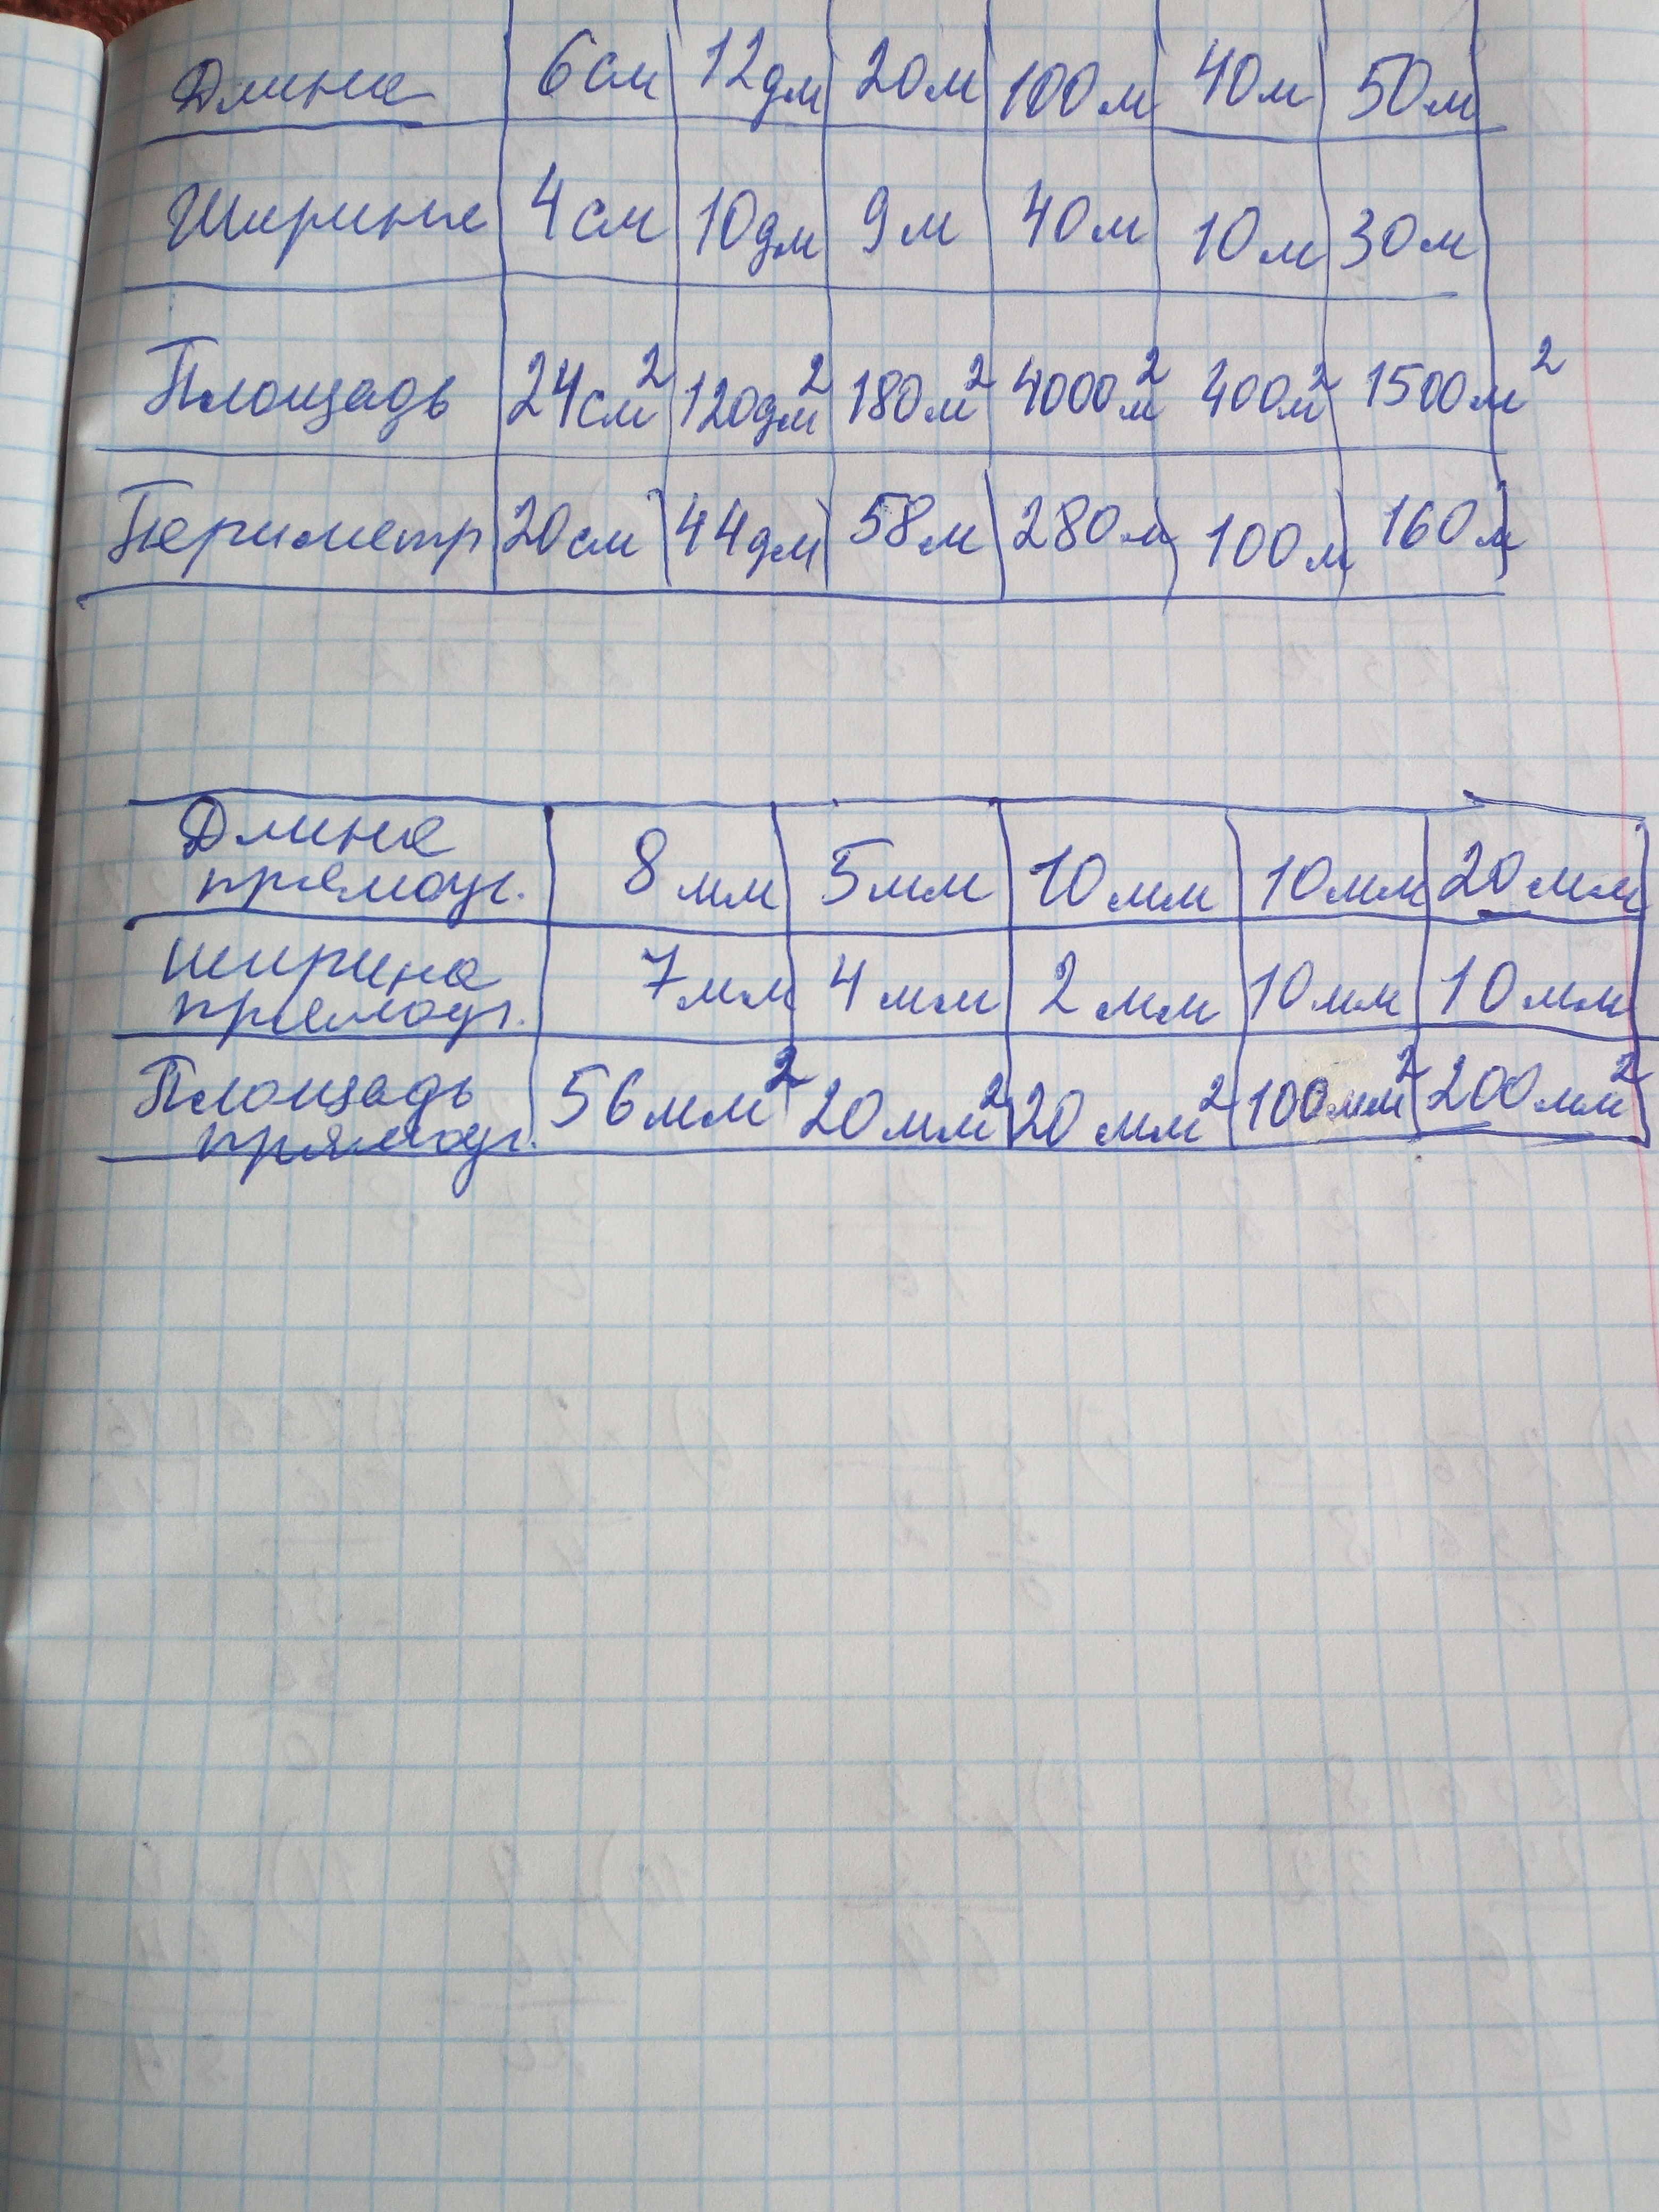 Длина 6см 12дм 20м 100м 40м 50м
Ширина 4см 10дм 9м 40м 10м 30м
Площадь 24см² 120дм² 180м² 4000м² 400м² 1500м²
Периметр 20см 44дм 58м 280м 100м 160м
Длина
прямоуг. 8мм 5мм 10мм 10мм 20мм
ширина
прямоуг. 7мм 4мм 2мм 10мм 10мм
Площадь
прямоуг. 56мм² 20мм² 20мм² 100мм² 200мм²